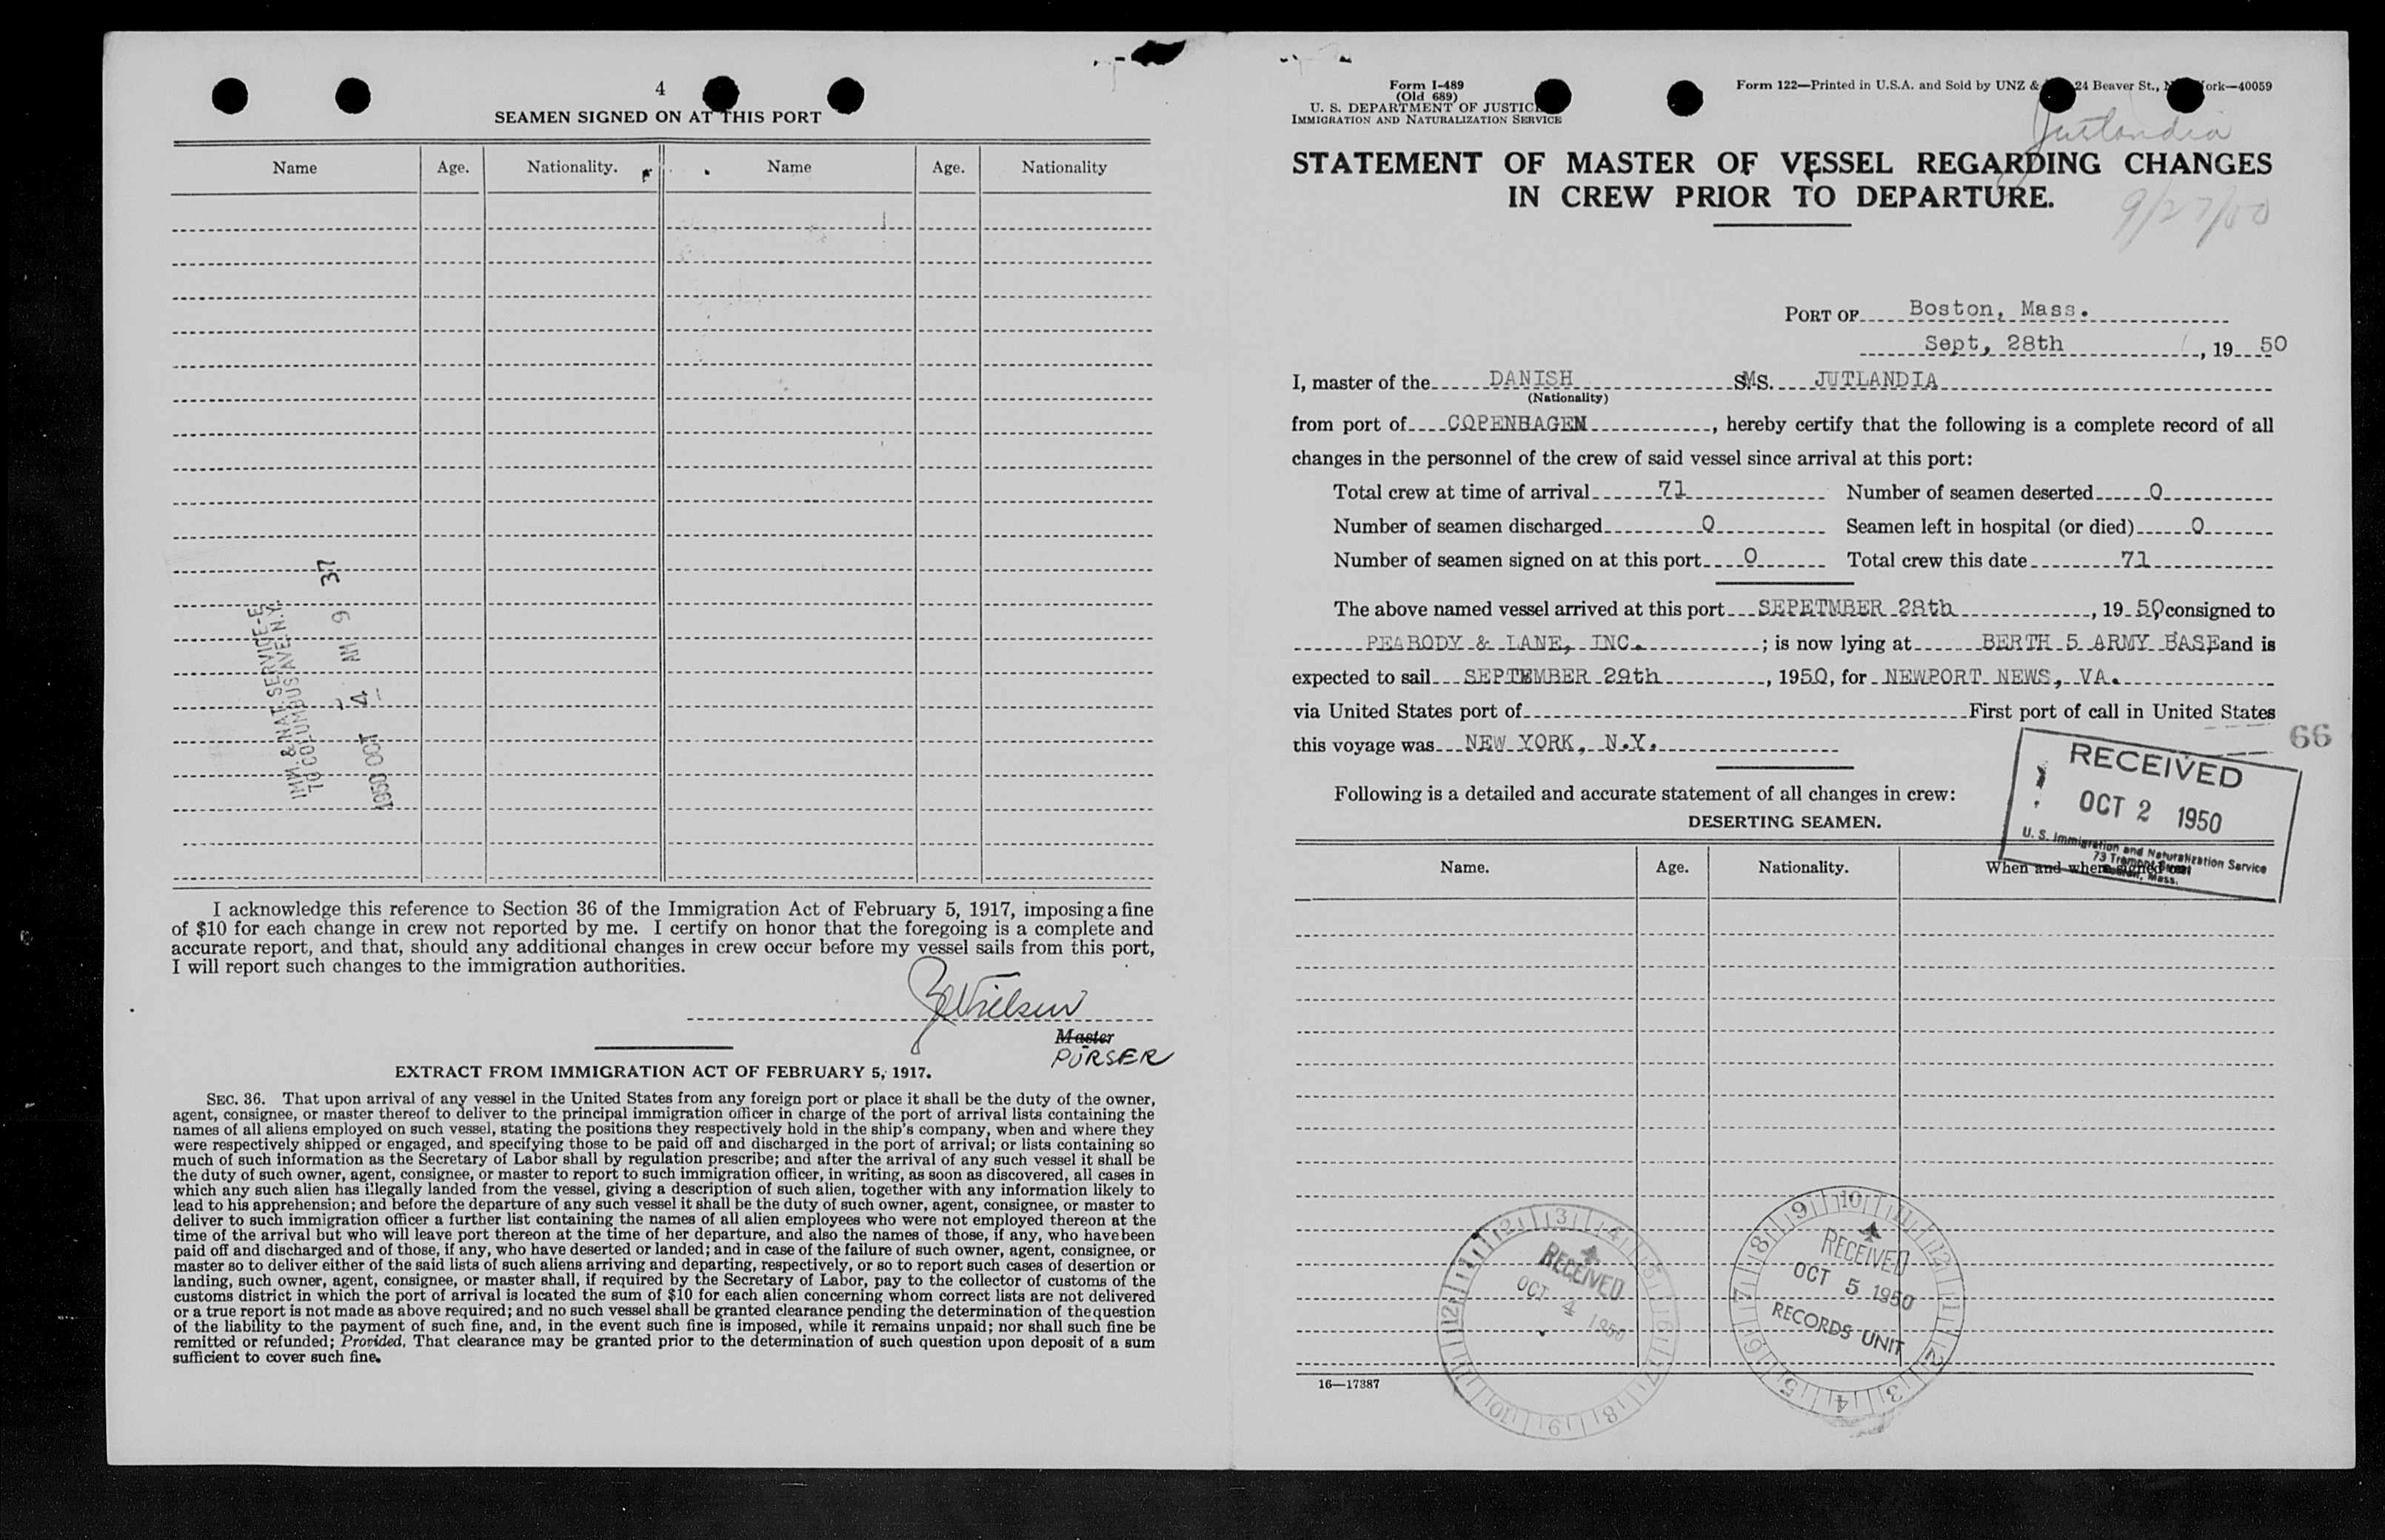 4
SEAMEN SIGNED ON AT THIS PORT
Name Age. Nationality. Name Age. Nationality
IMM. & NAT. SERVICE-E
70 COLUMBUS AVE. N.Y.
1950 OCT 4 AM 9 37
I acknowledge this reference to Section 36 of the Immigration Act of February 5, 1917, imposing a fine
of $10 for each change in crew not reported by me. I certify on honor that the foregoing is a complete and
accurate report, and that, should any additional changes in crew occur before my vessel sails from this port,
I will report such changes to the immigration authorities.
Nielsen
Master
PURSER
EXTRACT FROM IMMIGRATION ACT OF FEBRUARY 5, 1917.
SEC. 36. That upon arrival of any vessel in the United States from any foreign port or place it shall be the duty of the owner,
agent, consignee, or master thereof to deliver to the principal immigration officer in charge of the port of arrival lists containing the
names of all aliens employed on such vessel, stating the positions they respectively hold in the ship's company, when and where they
were respectively shipped or engaged, and specifying those to be paid off and discharged in the port of arrival; or lists containing so
much of such information as the Secretary of Labor shall by regulation prescribe; and after the arrival of any such vessel it shall be
the duty of such owner, agent, consignee, or master to report to such immigration officer, in writing, as soon as discovered, all cases in
which any such alien has illegally landed from the vessel, giving a description of such alien, together with any information likely to
lead to his apprehension; and before the departure of any such vessel it shall be the duty of such owner, agent, consignee, or master to
deliver to such immigration officer a further list containing the names of all alien employees who were not employed thereon at the
time of the arrival but who will leave port thereon at the time of her departure, and also the names of those, if any, who have been
paid off and discharged and of those, if any, who have deserted or landed; and in case of the failure of such owner, agent, consignee, or
master so to deliver either of the said lists of such aliens arriving and departing, respectively, or so to report such cases of desertion or
landing, such owner, agent, consignee, or master shall, if required by the Secretary of Labor, pay to the collector of customs of the
customs district in which the port of arrival is located the sum of $10 for each alien concerning whom correct lists are not delivered
or a true report is not made as above required; and no such vessel shall be granted clearance pending the determination of the question
of the liability to the payment of such fine, and, in the event such fine is imposed, while it remains unpaid; nor shall such fine be
remitted or refunded; Provided, That clearance may be granted prior to the determination of such question upon deposit of a sum
sufficient to cover such fine.
Form I-489
(Old 689)
U. S. DEPARTMENT OF JUSTIC
IMMIGRATION AND NATURALIZATION SERVICE
Form 122—Printed in U.S.A. and Sold by UNZ & 24 Beaver St., N ork—40059
Jutlandia
STATEMENT OF MASTER OF VESSEL REGARDING CHANGES
IN CREW PRIOR TO DEPARTURE.
9/27/50
PORT OF Boston, Mass.
Sept, 28th, 19 50
I, master of the DANISH S. JUTLANDIA
(Nationality)
from port of COPENHAGEN, hereby certify that the following is a complete record of all
changes in the personnel of the crew of said vessel since arrival at this port:
Total crew at time of arrival 71 Number of seamen deserted 0
Number of seamen discharged 0 Seamen left in hospital (or died) 0
Number of seamen signed on at this port 0 Total crew this date 71
The above named vessel arrived at this port SEPETMBER 28th, 19 50 consigned to
PEABODY & LANE, INC. ; is now lying at BERTH 5 ARMY BASE and is
expected to sail SEPTEMBER 29th, 1950, for NEWPORT NEWS, VA.
via United States port of First port of call in United States
this voyage was NEW YORK, N.Y.
66
RECEIVED
OCT 2 1950
U. S. Immigration and Naturalization Service
73 Tremont Street
Boston, Mass.
Following is a detailed and accurate statement of all changes in crew:
DESERTING SEAMEN.
Name. Age. Nationality. When and where signed on
RECEIVED
OCT 4 1950
RECEIVED
OCT 5 1950
RECORDS UNIT
16—17387